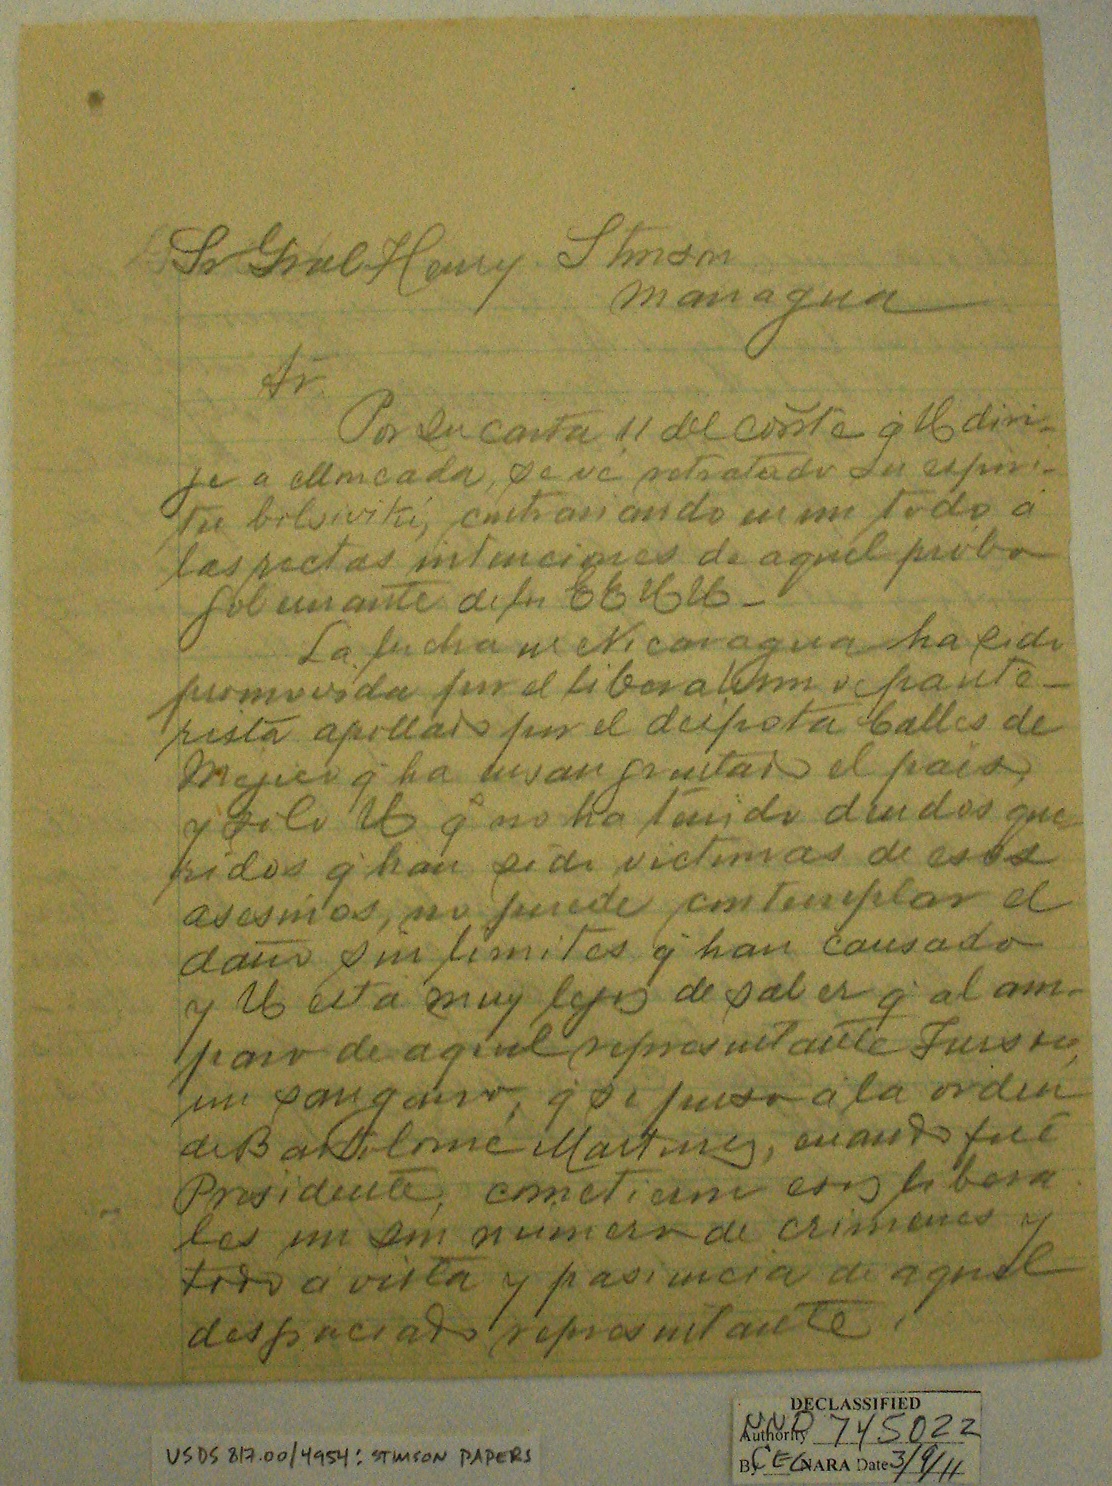 Sr Gral Henry Stimson
Managua
Sr.
Por su carta 11 del corrte q' U diri-
je a Moncada, se vé retratado su espiri-
tu bolsiviki, contrariando en un todo á
las rectas intenciones de aquel probo
gobernante de los EE UU -
La lucha en Nicaragua ha sido
promovida por el liberalismo
rista apollado por el despota Calles de
Mejico q' ha ensangrentado el pais,
y solo U q' no ha tenido deudos que
ridos q' han sido victimas de esos
asesinos, no puede contemplar el
daño sin limites q' han causado
y U esta muy lejos de saber q' al am-
paro de aquel representante
un , q' se puso á la orden
de Bartolomé Martinez, cuando fué
Presidente, cometieron esos libera
les un sin número de crimenes y
todo á vista y pasiencia de aquel
desgraciado representante.
USDS 817.00/4954: STIMSON PAPERS
DECLASSIFIED
Authority NND 745022
By CEC NARA Date 3/9/11